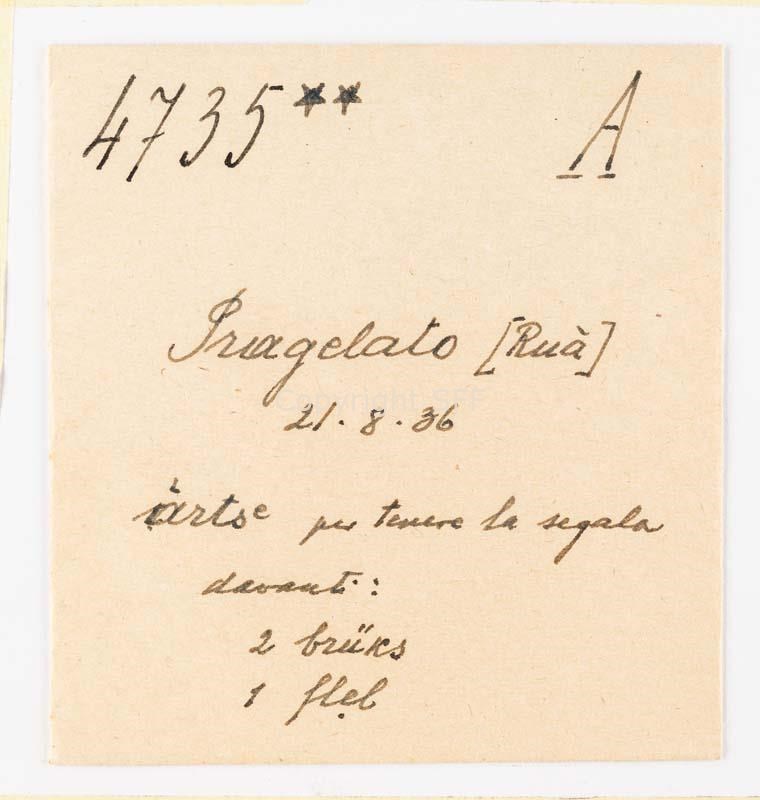 4735** A
Pragelato [Ruà]
21.8.36
àrtsᵉ per tenere la segala
davanti:
2 brüks
1 flẹl